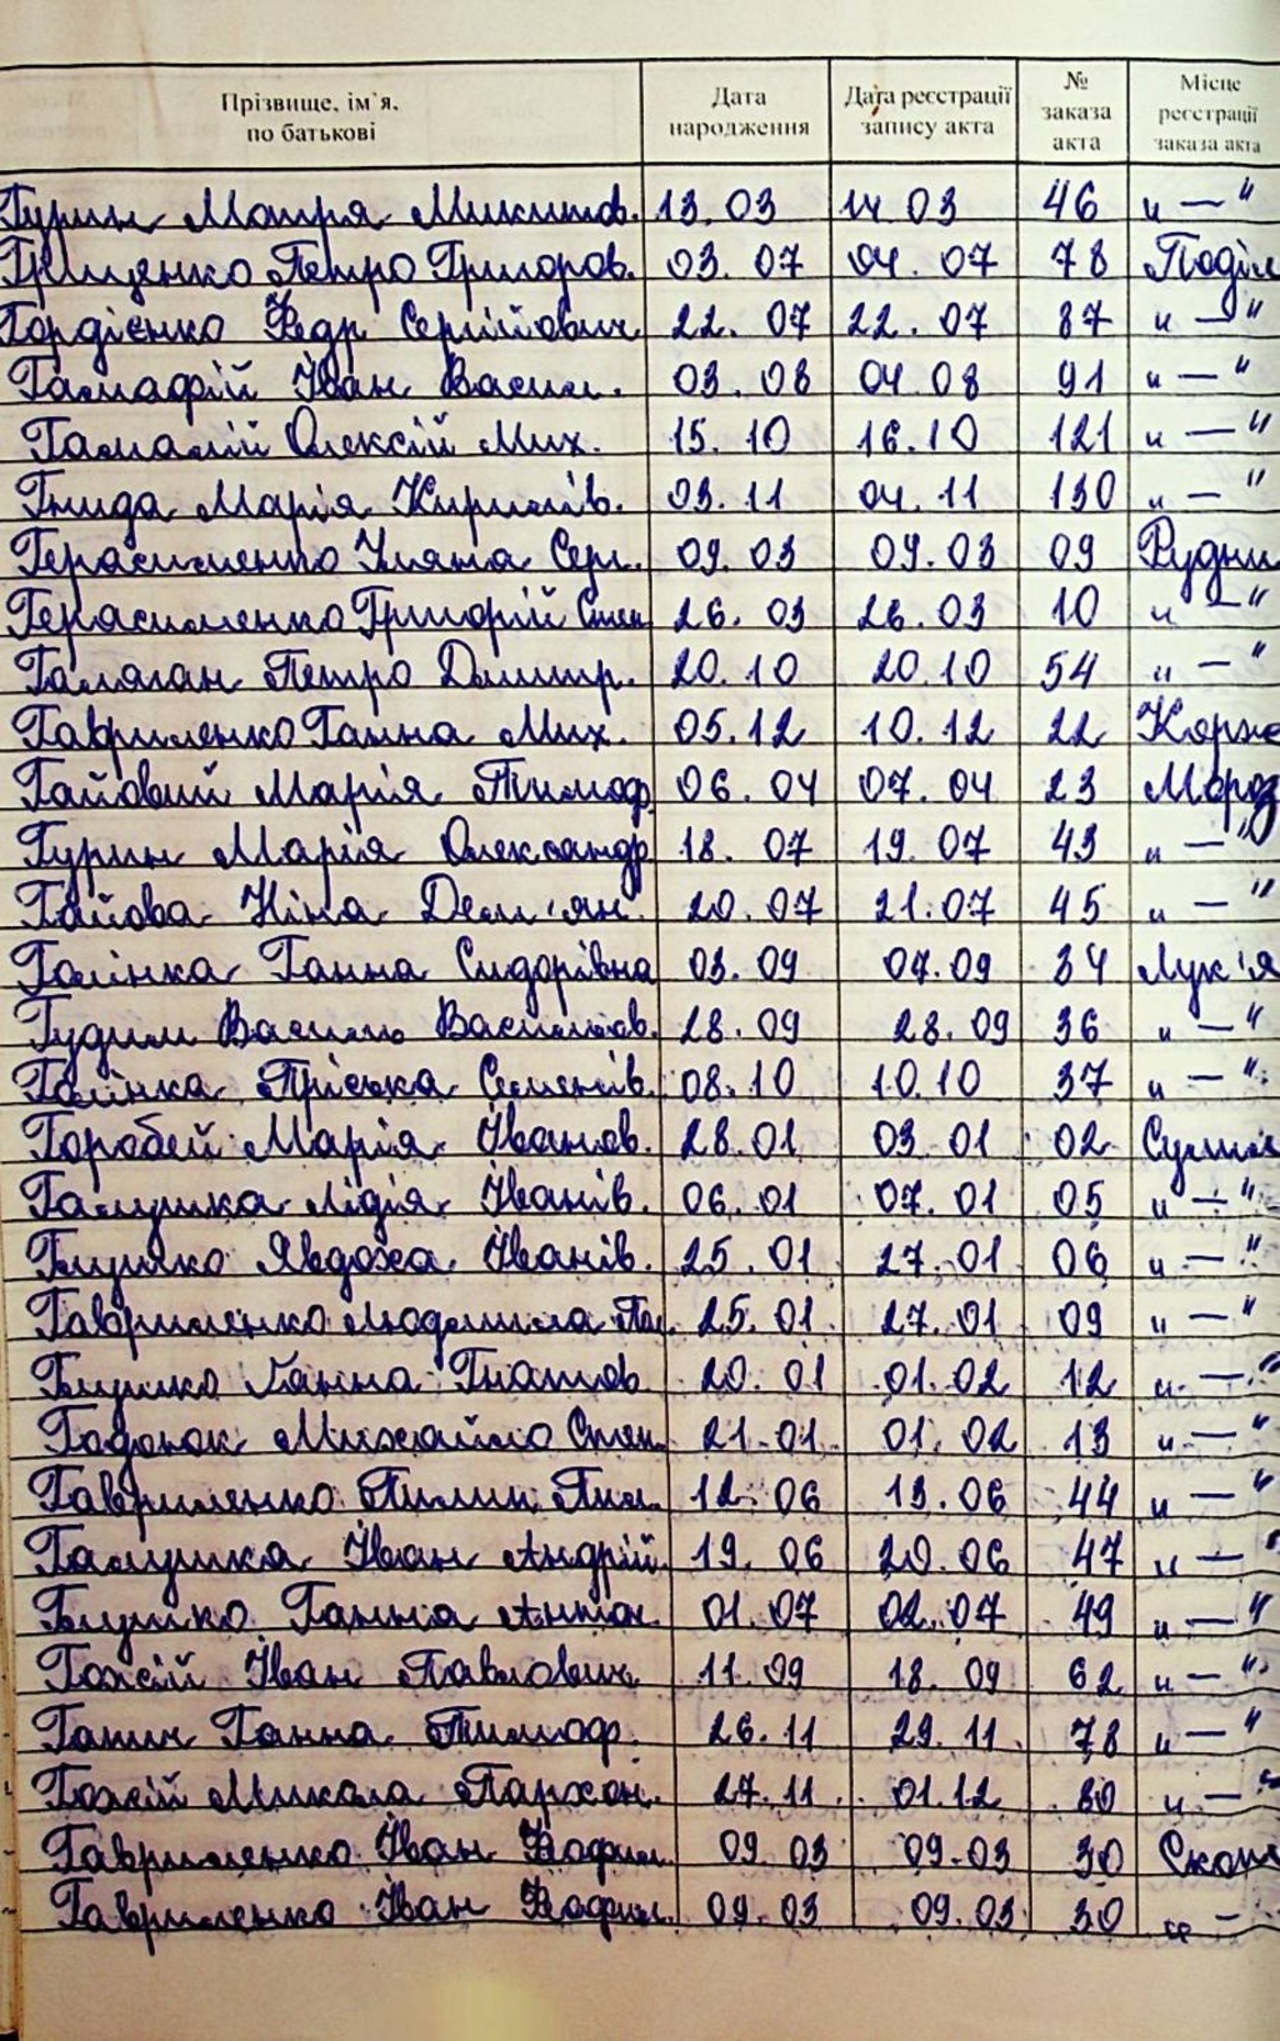 Прізвище, ім'я, по батькові Дата народження Дата реєстрації запису акта № заказа акта Місце реєстрації заказа акта
Гурин Мотря Микитов. 13.03 14 03 46 " — "
Грищенко Петро Григоров. 03. 07 04. 07 78 Поділ
Гордієнко Федр Сергійович 22. 07 22. 07 87 " — "
Іван Васил. 03. 08 04 08 91 " — "
Гамалій Олексій Мих. 15. 10 16. 10 121 " — "
Гнида Марія Кирилів. 03. 11 04. 11 130 " — "
Герасименко Уляна Сер. 09. 03 09. 03 09 Рудни
Герасименко Григорій Степ 26. 03 26. 03 10 " — "
Галаган Петро Дмитр. 20. 10 20. 10 54 " — "
Гавриленко Ганна Мих. 05. 12 10. 12 22 Корже
Гайовий Марія Тимоф. 06. 04 07. 04 23 Мороз
Гурин Марія Олександр. 18. 07 19. 07 43 " — "
Гайова Ніна Дем'ян. 20. 07 21. 07 45 " — "
Галінка Ганна Сидорівна 03. 09 07. 09 34 Лук'я
Гудим Василь Васильов. 28. 09 28. 09 36 " — "
Галінка Пріська Семенів. 08. 10 10. 10 37 " — "
Горобей Марія Іванов. 28. 01 03 01 02 Сулим
Галушка Лідія Іванів. 06. 01 07. 01 05 " — "
Явдоха Іванів. 25. 01 27. 01 06 " — "
Гавриленко Людмила Пав. 25. 01 27. 01 09 " — "
Ганна Гнатов. 20. 01 01. 02 12 " — "
Годонок Михайло Степ. 21. 01 01. 02 13 " — "
Гавриленко 12. 06 13. 06 44 " — "
Галушка Іван Андрій. 19. 06 20. 06 47 " — "
Ганна Антон. 01. 07 02. 07 49 " — "
Гожій Іван Павлович 11. 09 18. 09 62 " — "
Ганич Ганна Тимоф. 26. 11 29. 11 78 " — "
Гожій Микола Пархом. 27. 11 01. 12 80 " — "
Гавриленко Іван 09. 03 09. 03 30 Скоп
Гавриленко Іван 09. 03 09. 03 30 " —